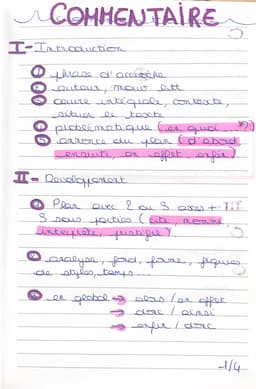 COMMENTAIRE
I - Introduction
① phrase d'accroche
② auteur, mouv litt
③ oeuvre intégrale, contexte,
situer le texte
④ problématique (en quoi ... ?)
⑤ annonce du plan (d'abord
ensuite en effet enfin)
II - Développement
① Plan avec 2 ou 3 axes +
3 sous parties (cite, nomme
interprète, justifie)
② analyse, fond, forme, figures
de styles, temps...
③ en global → alors / en effet
→ donc / ainsi
→ enfin / donc
1/4